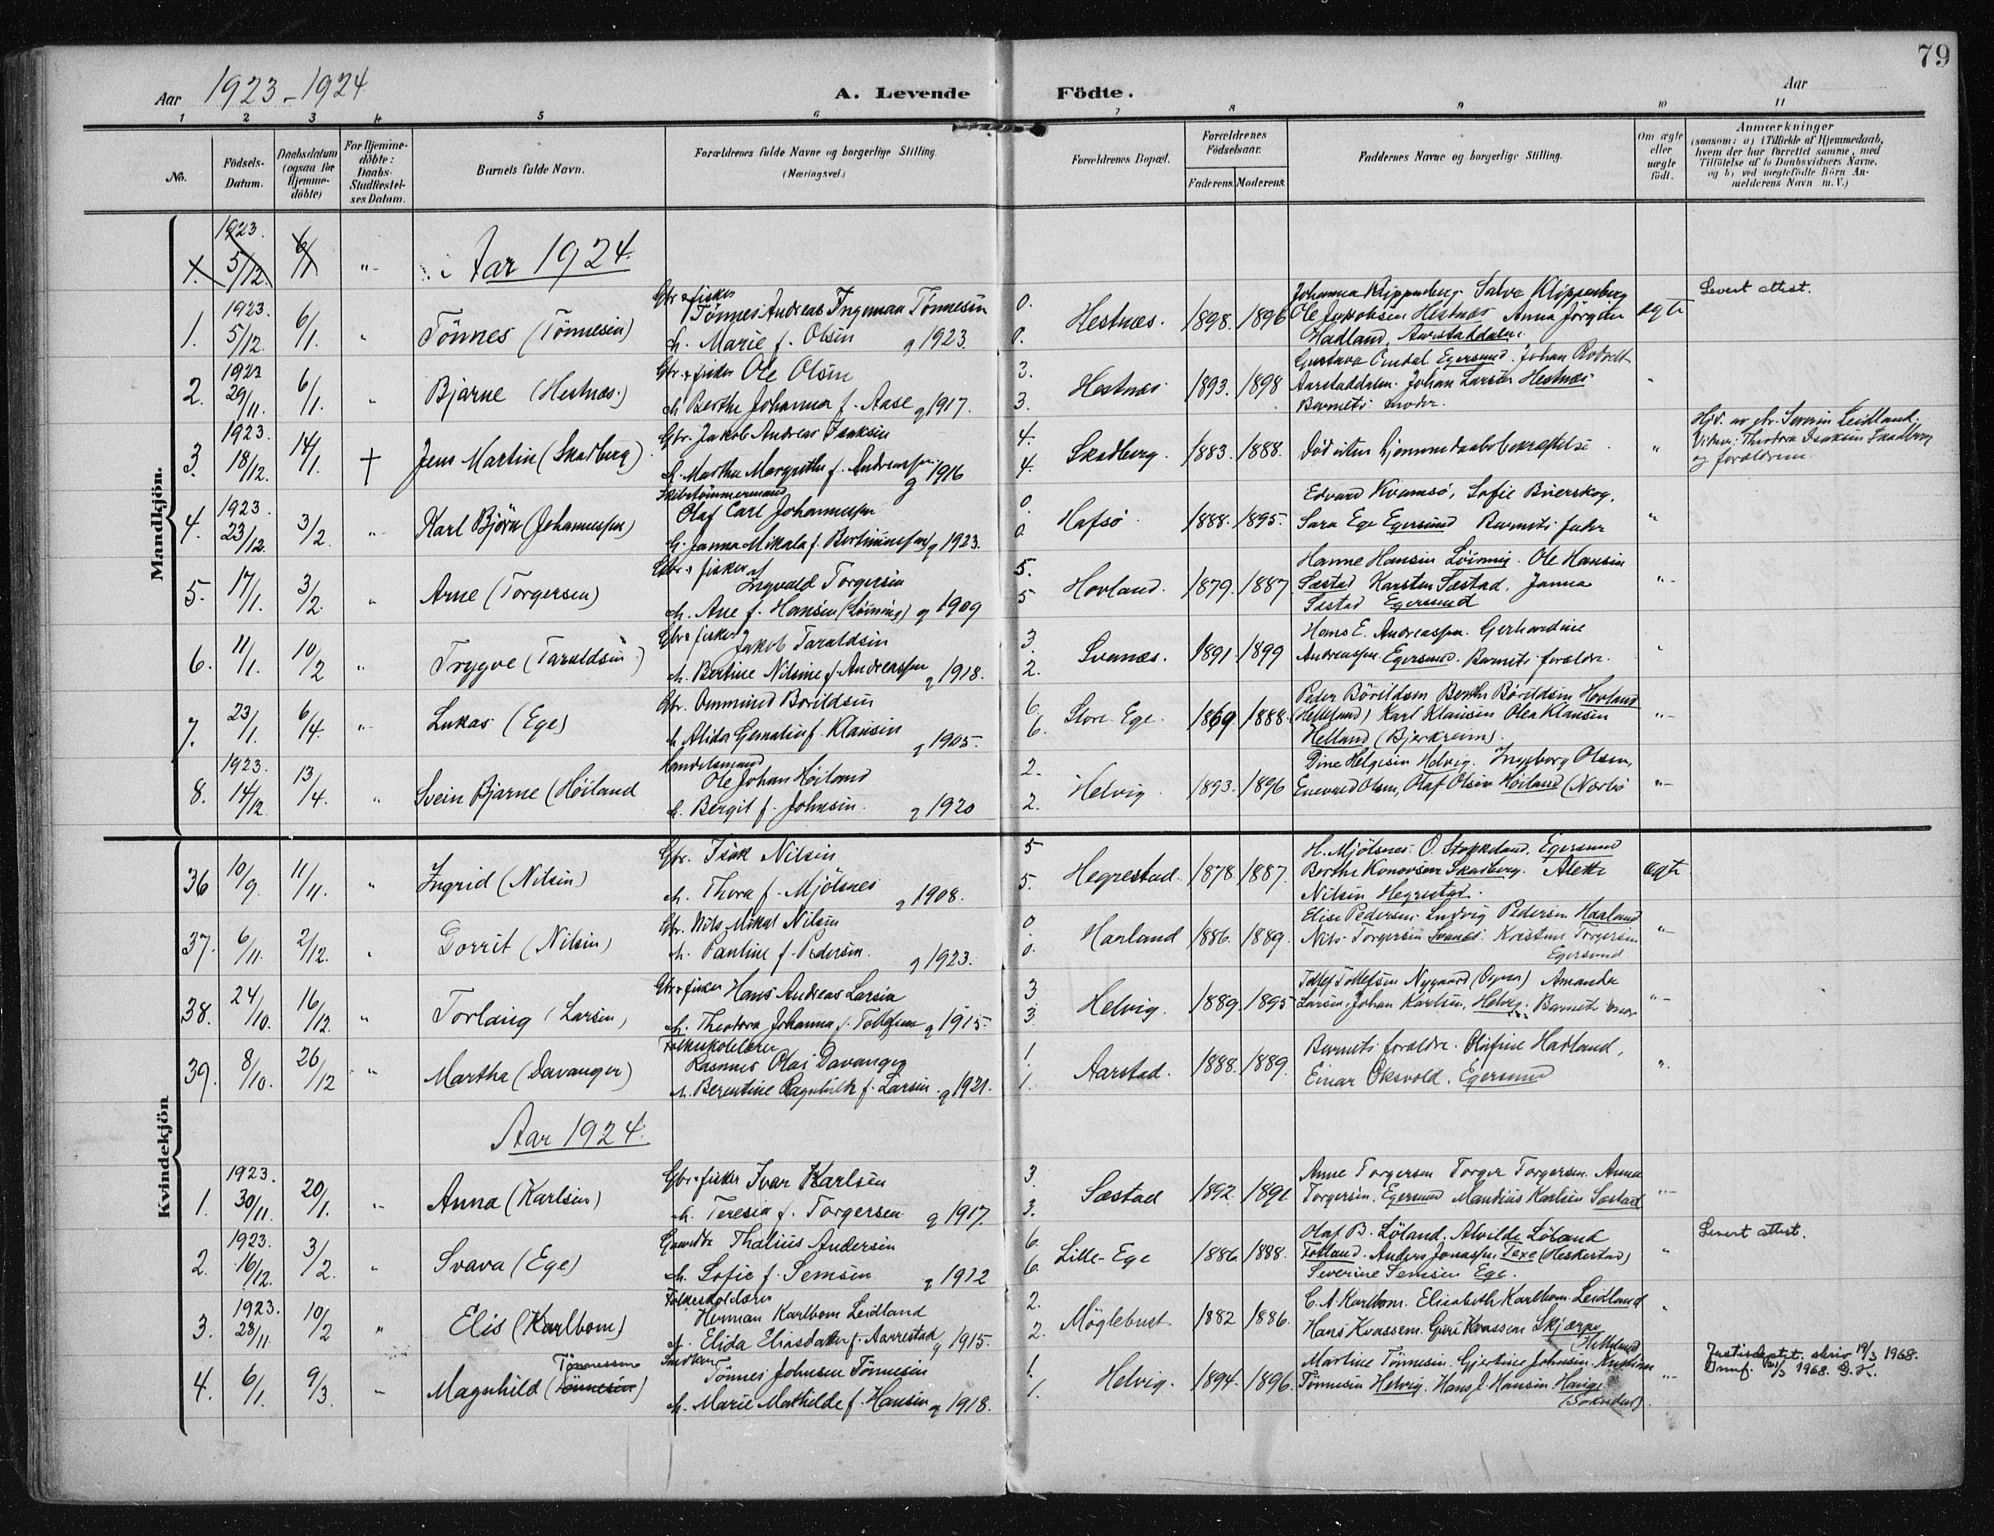 79
Aar 1923-1924
A. Levende Födte.
Aar
1 2 3 4 5 6 7 8 9 10 11
No.
Födsels-Datum.
Daabsdatum (ogsaa for Hjemme-döbte)
For Hjemme-döbte: Daabs-Stadfæstel-ses Datum.
Barnets fulde Navn.
Forældrenes fulde Navne og borgerlige Stilling.
(Næringsvei.)
Forældrenes Bopæl.
Forældrenes Födselsaar.
Faderens. Moderens.
Faddernes Navne og borgerlige Stilling.
Om ægte eller uægte födt.
Anmærkninger
(saasom: a) i Tilfælde af Hjemmedaab, hvem der har forrettet samme, med Tilföielse af to Daabsvidners Navne, og b) ved uægtefödte Börn An-melderens Navn m. V.)
Mandkjön.
1923. 5/12. 6/1 "
Aar 1924.
1. 1923. 5/12. 6/1. " Tönnes (Tönnesen)
Gbr & fisker Tönnes Andreas Ingeman Tönnesen
h. Marie f. Olsen g 1923.
0. 0. Hestnæs. 1898. 1896
Johanna Klippenberg. Salve Klippenberg
Ole Jakobsen Hestnæs Anna Jörgine
Hadland, Aarstaddalen.
ægte
Levert attest.
2. 1923 29/11. 6/1. " Bjarne (Hestnæs.)
Gbr. & fisker Ole Olsen
h. Berthe Johanna f. Aase g 1917.
3. 3. Hestnæs 1893. 1898
Gustava Omdal Egersund. Johan Rodvelt
Aarstaddalen. Johan Larsen Hestnæs.
Barnets moder.
"
3. 1923. 18/12. 14/1. † Jens Martin (Skadberg)
Gbr. Jakob Andreas Isaksen
h. Martha Margrethe f. Andreassen g 1916
4. 4. Skadberg. 1883. 1888.
Död uten hjemmedaabsbekræftelse
"
Hjd. av Severin Leidland.
Vidner: Theodora Isaksen Skadberg
og forældrene
4. 1923. 23/12. 3/2. " Karl Björn (Johannessen)
Skibstömmermand
Olaf Carl Johannessen
h. Janna Mikala f. Bertinussen g 1923.
0 0. Hafsö 1888. 1895.
Edvard Kvamsö, Sofie
Sara Ege Egersund Barnets fader
"
5. 17/1. 3/2. " Arne (Torgersen)
Gbr. & fisker Ingvald Torgersen
h. Ane f. Hansen (Löining) g 1909
5. 5 Hovland. 1879. 1887
Hanne Hansen Löining. Ole Hansen
Sæstad Karsten Sæstad. Janna
Sæstad Egersund
"
6. 11/1. 10/2 " Trygve (Taraldsen)
Gbr & fisker Jakob Taraldsen
h. Bertine Nilsine f. Andreassen g 1918.
3. 2. Svanæs. 1891. 1899
Hans E. Andreassen. Gerhardine
Andreassen Egersund. Barnets forældre.
"
7. 23/1. 6/4. " Lukas (Ege)
Gbr. Ommund Börildsen
h. Alida Gematia f. Klausen g 1905.
6. 6. Store Ege. 1869. 1888.
Peder Börildsen Berthe Börildsen Hovland
(Helleland) Karl Klausen Olea Klausen
Helland (Bjerkreim).
"
8. 1923. 14/12. 13/4. " Svein Bjarne (Höiland
Handelsmand
Ole Johan Höiland
h. Bergit f. Johnsen. g 1920
2. 2. Helvig 1893. 1896
Dine Helgesen Helvig. Ingeborg Olsen,
Enevard Olsen, Olaf Olsen Höiland (Nærbö
"
Kvindekjön
36 10/9. 11/11. " Ingrid (Nilsen)
Gbr. Isak Nilsen
h. Thora f. Mjölsnes g 1908.
5 5. Hegrestad. 1878. 1887.
H. Mjölsnes. O. Stapnland. Egersund
Berthe Konovsen Skadberg. Alette
Nilsen Hegrestad.
ægte
37. 6/11. 2/12. " Gorrit (Nilsen)
Gbr. Nils Mikal Nilsen
h. Pauline f. Pedersen. g 1923.
0 0. Haaland 1886. 1889.
Elise Pedersen. Ludvig Pedersen Haaland
Nils Torgersen Svanes. Kristine Torgersen
Egersund.
"
38. 24/10. 16/12. " Torlaug (Larsen)
Gbr & fisker Hans Andreas Larsen
h. Theodora Johanna f. Tollefsen g 1915.
3 3. Helvig. 1889. 1895
Tollef Tollefsen Nygaard (Ogna) Amanda
Larsen. Johan Karlsen, Helvig. Barnets mor
"
39. 8/10. 26/12 " Martha (Davanger)
Folkeskolelærer
Rasmus Olai Davanger
h. Berentine Ragnhild f. Larsen. g 1921.
1. 1. Aarstad. 1888. 1889.
Barnets forældre. Olufine Hadland,
Einar Oksvold. Egersund
"
Aar 1924.
1. 1923. 30/11. 20/1. " Anna (Karlsen)
Gbr & fisker Ivar Karlsen
h. Teresia f. Torgersen g 1917.
3. 3. Sæstad 1892. 1891.
Anne Torgersen Torger Torgersen. Anna
Torgersen. Egersund Mandius Karlsen Sæstad
"
2. 1923. 16/12. 3/2. " Svava (Ege)
Thalius Andersen
h. Sofie f. Semsen g 1912
6. 6. Lille-Ege 1886. 1888.
Olaf B. Löland. Alvilde Löland
Fotland. Anders Jonassen Texe (Heskestad)
Severine Semsen Ege.
"
Levert attest.
3. 1923. 28/11. 10/2 " Elis (Karlbom)
Folkeskolelærer
Herman Karlbom Leidland
h. Elida Eliasdatter f. Aarrestad g 1915.
2. 2. Möglebust. 1882 1886.
C. A. Karlbom. Elisabeth Karlbom. Leidland
Hans Kvassem. Guri Kvassem Skjærpe
Helleland
"
4. 6/1. 9/3. " Magnhild (Tönnesen) Tönnessen
Snedker Tönnes Johnsen Tönnesen
h. Marie Mathilde f. Hansen g 1918.
1. 1. Helvig. 1894. 1896.
Martine Tönnesen. Gjertine Johnsen. Kristine
Tönnesen Helvig. Hans J. Hansen Hauge
(Sokndal).
"
Justisdeptet. skriv 19/3 1968.
21/3 1968.